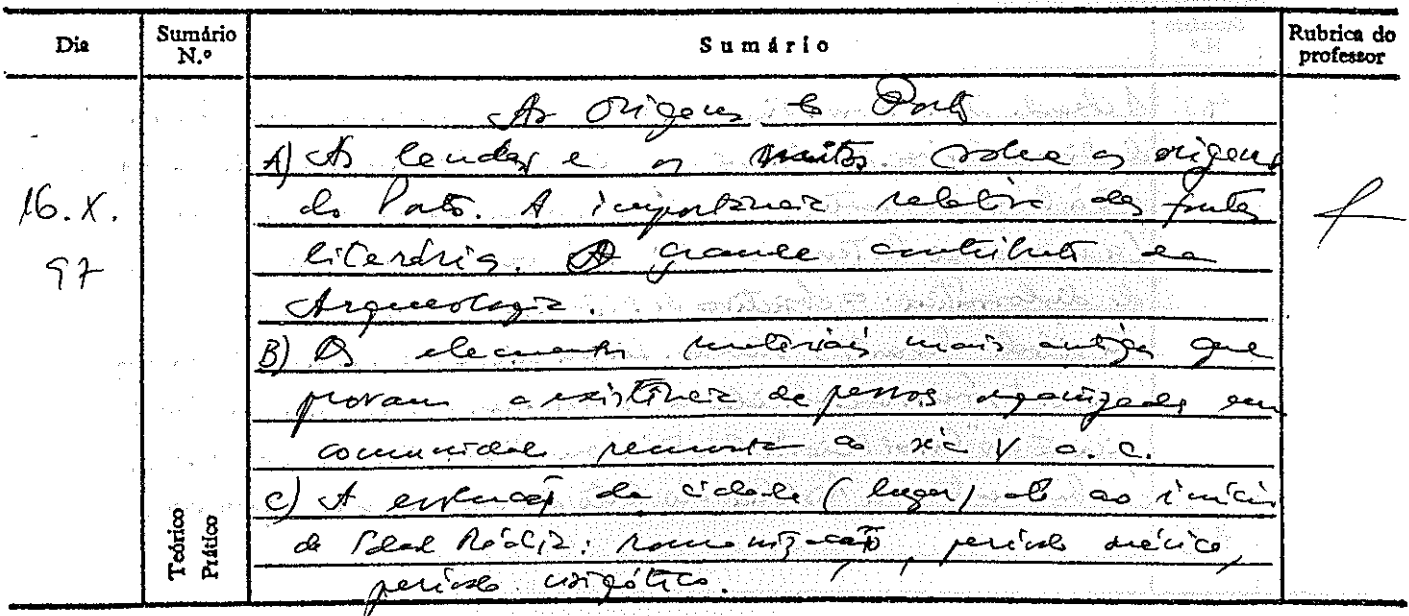 Dia
Sumário N.º
Sumário
Rubrica do professor
16.X.
97
As Origens do Porto
A) As lendas e os mitos sobre as origens
do Porto. A importância relativa das fontes
literárias. O grande contributo da
Arqueologia.
B) Os elementos materiais mais antigos que
provam a existência de pessoas organizadas em
comunidade remonta ao séc. V a. C.
C) A evolução da cidade (lugar) até ao início
da Idade Média: romanização, período suévico,
período visigótico.
Teórico
Prático